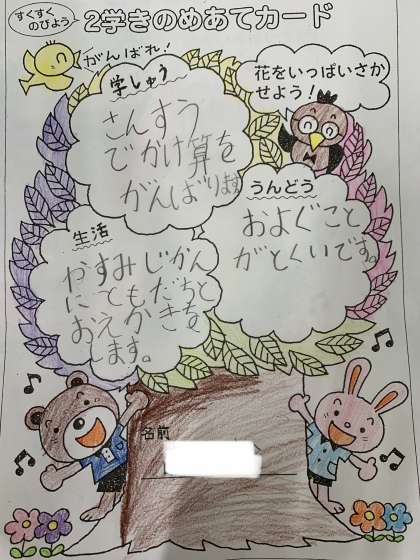 すくすく
のびよう
2学きのめあてカード
がんばれ！
学しゅう
さんすう
でかけ算を
がんばります
花をいっぱいさか
せよう！
うんどう
およぐこと
がとくいです。
生活
やすみじかん
にともだちと
おえかきを
します。
名前